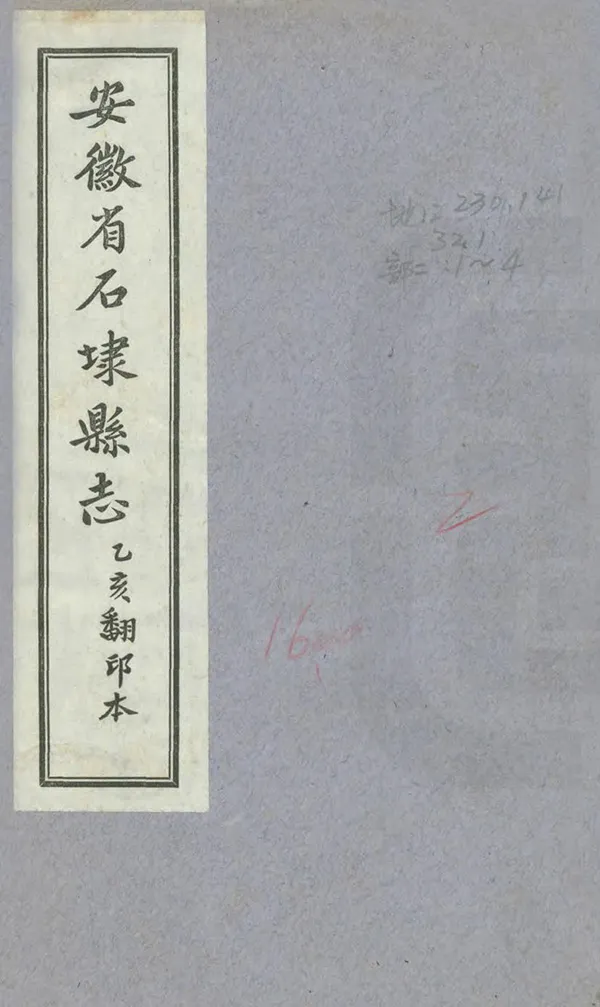 安徽省石埭縣志
乙亥翻印本
230.141
32.1
1~4
乙
16